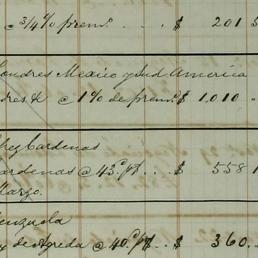 @ 3/4% prem.º $ 201 5
Londres Mexico y Sud America
dres & @ 1% de prem.º $ 1,010
hez Cardenas
Cardenas @ 43.º pf... $ 558 1
Marzo.
enezuela
y de Agreda @ 40.º pf.. $ 360.